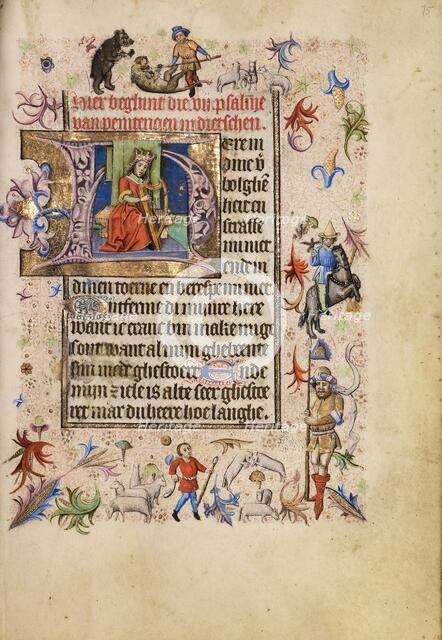 75
Hier beghint die vii psalme
van penitencien in dietschen.
Here in
dine v
bolghē
heit en
straffe
mi niet
ende in
dinen toerne en berespe mi niet
Ontfermt di mijnre here
want ic cranc bin make mi ge
sont want al mijn ghebeente
sijn zeer ghestoert Ende
mijn ziele is alte seer ghestoe
ret mar du heere hoe langhe.
Heritage
Heritage
Heritage
Heritage
Heritage
Heritage